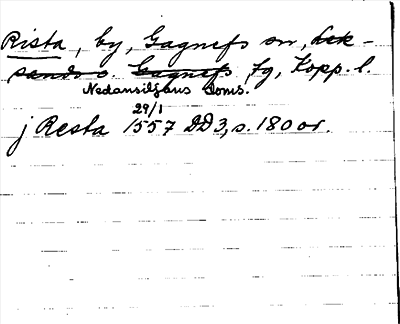 Rista, by, Gagnefs sn, Lek-
sands o. Gagnefs tg, Kopp. l.
Nedansiljans doms.
29/1
j Resta 1557 DD 3, s. 180 or.